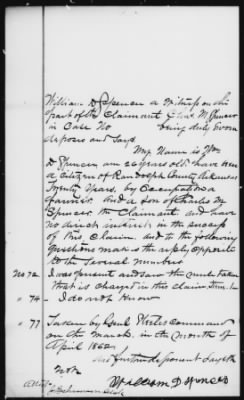 William D Spencer a Witness on the
part of the Claimant Chas M Spencer
in Case No being duly sworn
deposes and says
My Name is Wm
D Spencer am 26 years old have been
a Citizen of Randolph County Arkansas
Twenty Years. by Occupation a
farmer. And a son of Charles M
Spencer the Claimant and have
no direct interest in the success
of this Claim. and to the following
Questions makes the reply opposite
to the several numbers
No 72 I was present and saw the mule taken
that is charged in this claim
" 74 - I do not Know
" 77 Taken by Genl Command
on the March. in the month of
April 1862
And further deponent sayeth
not
Attest William D Spencer